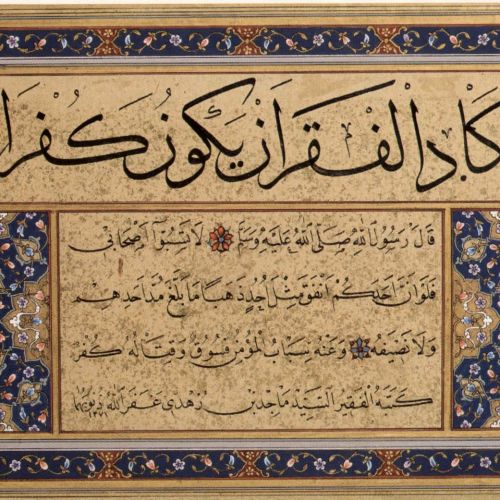 كَادَ الْفَقْرُ اَنْ يَكُونَ كُفْرًا
قَالَ رَسُولُ اللّٰهِ صَلَّى اللّٰهُ عَلَيْهِ وَسَلَّمَ لَا تَسُبُّوا اَصْحَابِي
فَلَوْ اَنَّ اَحَدَكُمْ اَنْفَقَ مِثْلَ اُحُدٍ ذَهَبًا مَا بَلَغَ مُدَّ اَحَدِهِمْ
وَلَا نَصِيفَهُ وَعَنْهُ سِبَابُ الْمُؤْمِنِ فُسُوقٌ وَقِتَالُهُ كُفْرٌ
كَتَبَهُ الْفَقِيرُ السَّيِّدُ مَاجِدُ بْنُ زُهْدِي غَفَرَ اللّٰهُ ذُنُوبَهُمَا